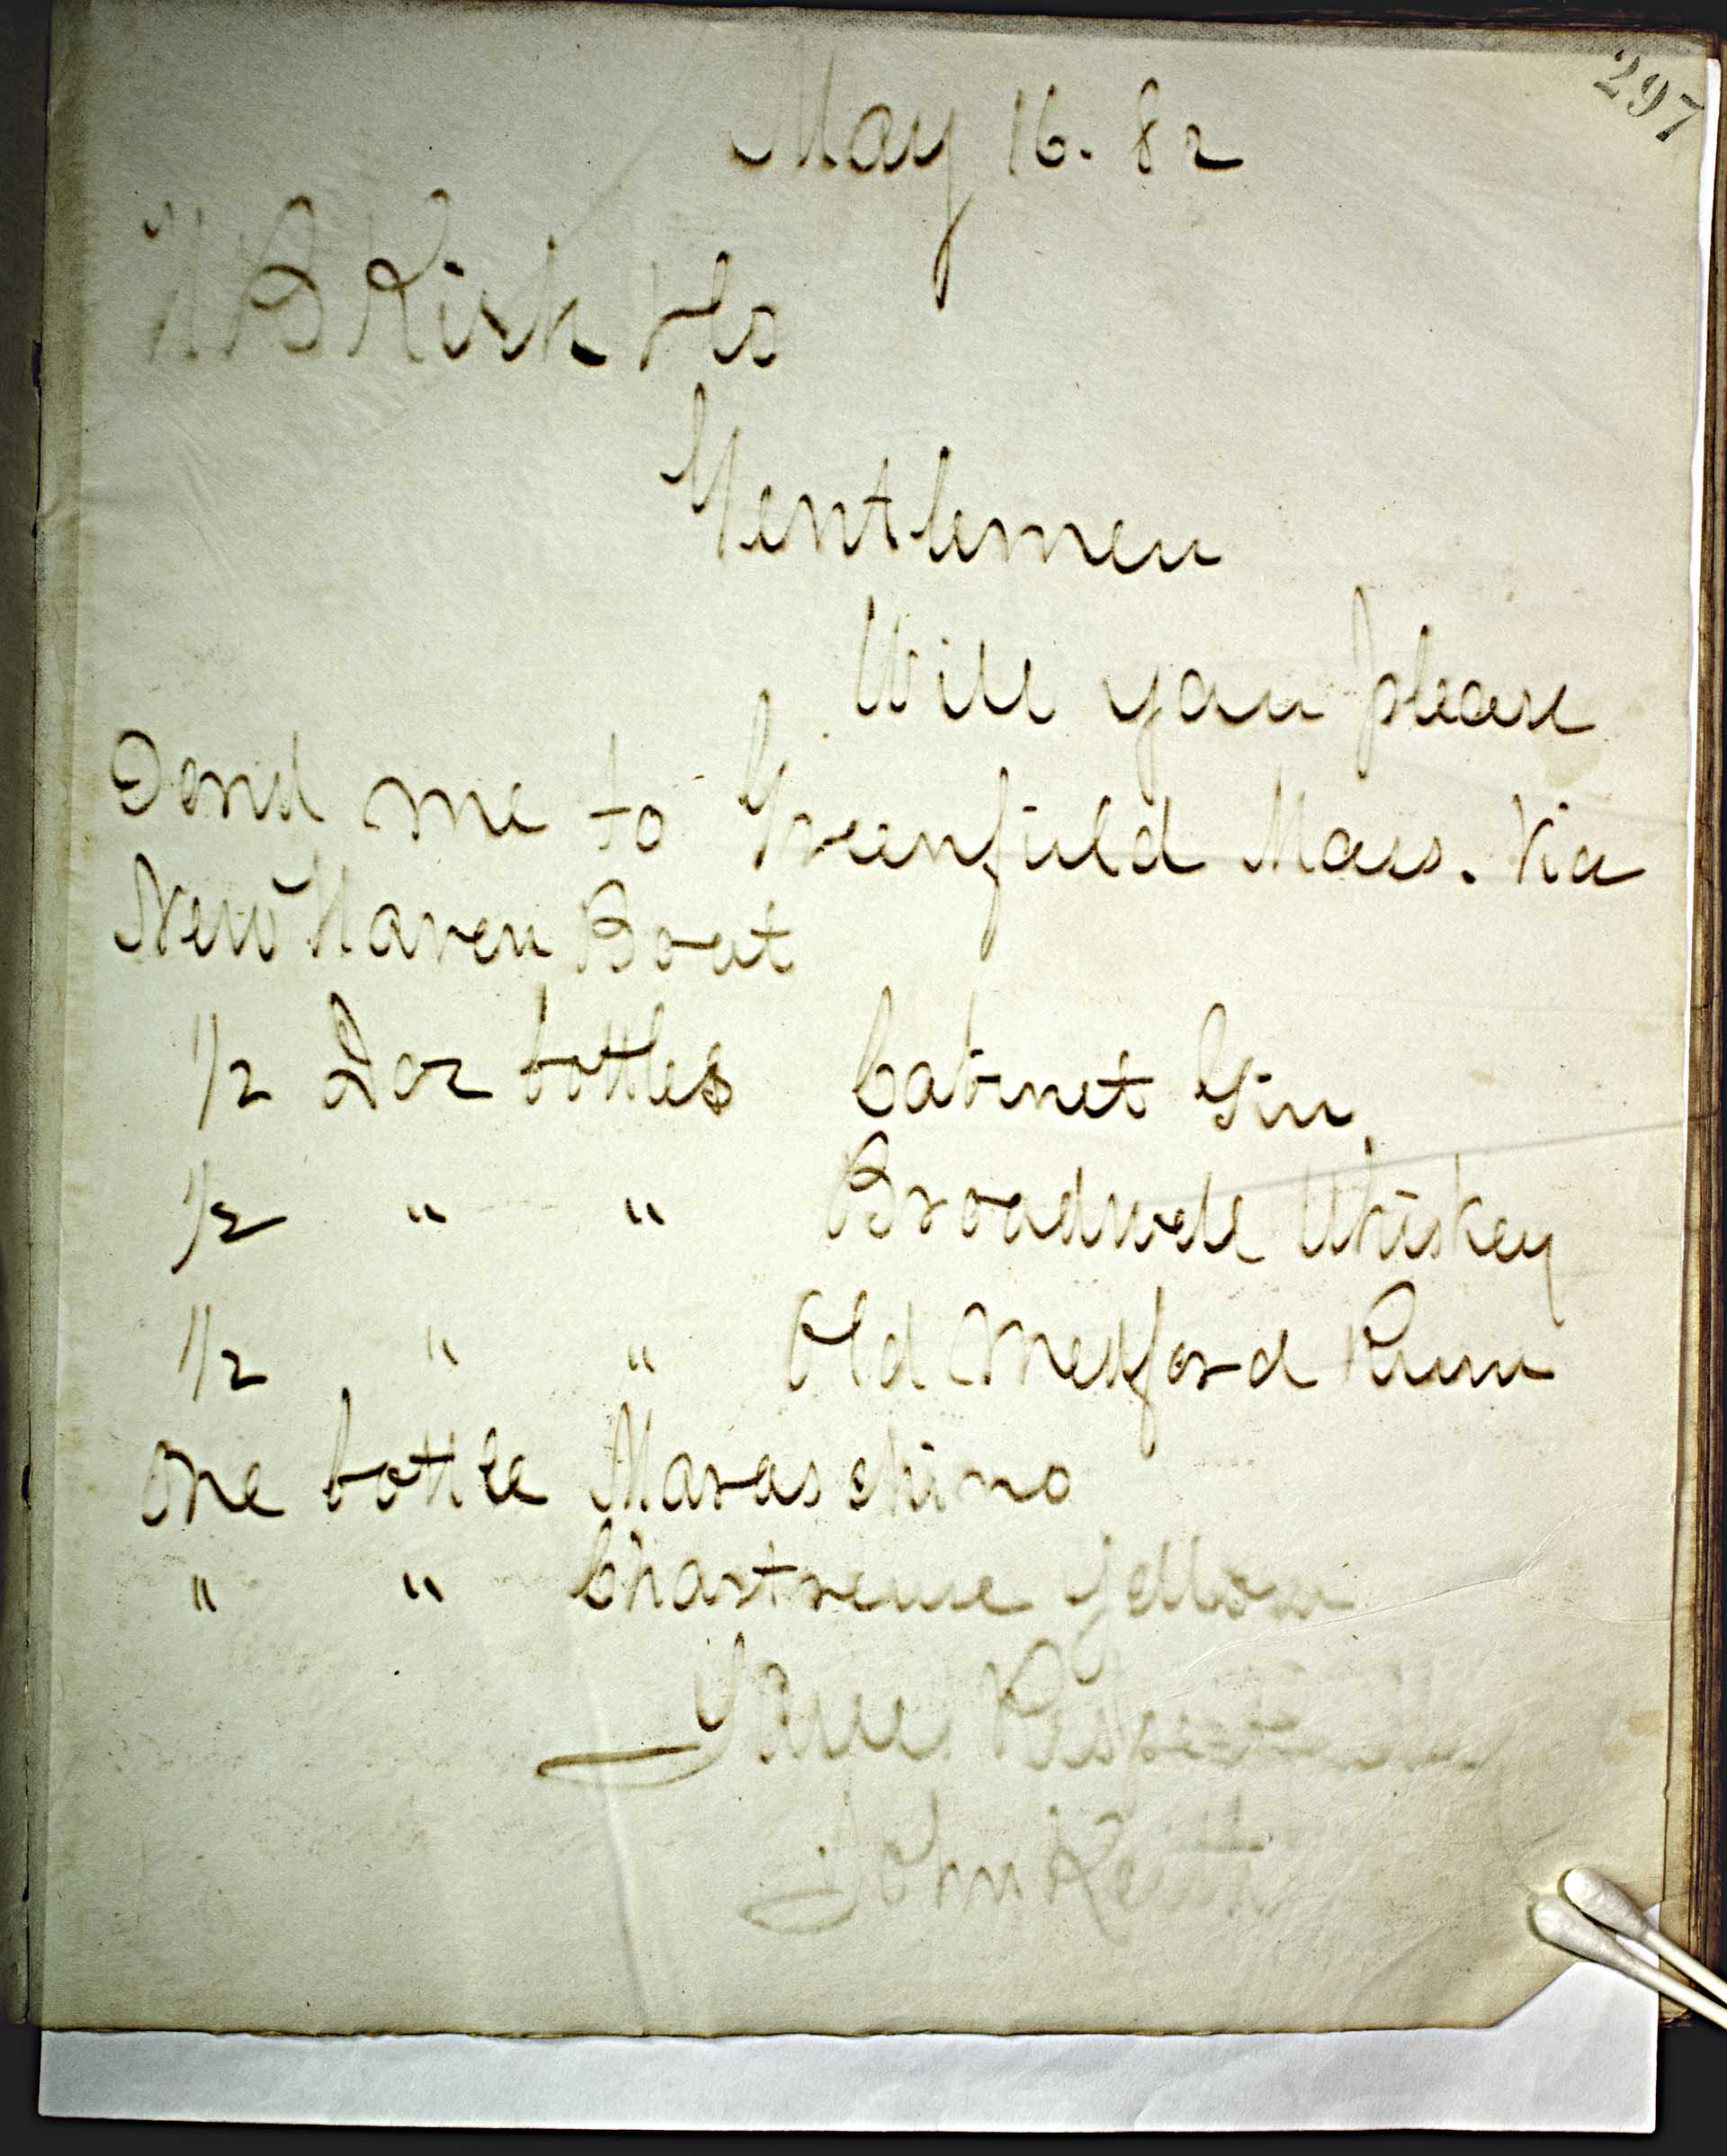 297
May 16. 82
H B Kirk & Co
Gentlemen
Will you please
Send me to Greenfield Mass. Via
New Haven Boat
1/2 Doz bottles Cabinet Gin
1/2 " " Broadwell Whiskey
1/2 " " Old Medford Rum
One bottle Maraschino
" " Chartreuse Yellow
Yours Respectfully
John Keith